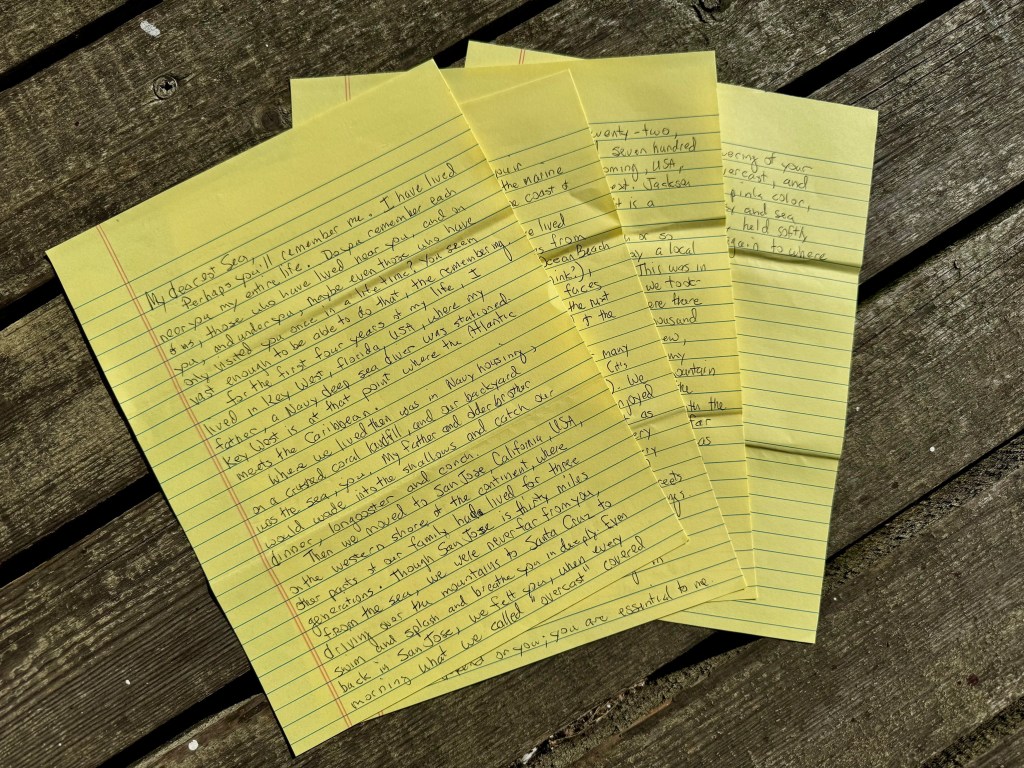 My dearest Sea,
Perhaps you'll remember me. I have lived
near you my entire life. Do you remember each
of us, those who have lived near you, and on
you, and under you, maybe even those who have
only visited you once in a lifetime? You seem
vast enough to be able to do that the remembering.
for the first four years of my life, I
lived in Key West, Florida, USA, where my
father, a Navy deep sea diver was stationed.
Key West is at that point where the Atlantic
meets the Caribbean.
Where we lived then was in Navy housing,
on a crushed coral landfill, and our backyard
was the sea, you. My father and older brother
would wade into the shallows and catch our
dinner, longooster and conch.
Then we moved to San Jose, California, USA,
on the western shore of the continent, where
other parts of our family had lived for three
generations. Though San Jose is thirty miles
from the sea, we were never far from you,
driving over the mountains to Santa Cruz to
swim and splash and breathe you in deeply. Even
back in San Jose, we felt you, when every
morning what we called "overcast" covered
you in
the marine
coast of
lived
from
ean Beach
ink?),
faces
the rust
the
many
(it's
). We
joyed
as
ery
eeds
on you; you are essential to me
wenty-two,
seven hundred
oming, USA,
est. Jackson
it is a
or so
by a local
This was in
we took
ere there
ousand
ew,
my
ountain
the
with the
far
as
ering of your
ercast, and
pink color,
and sea
held softly
again to where